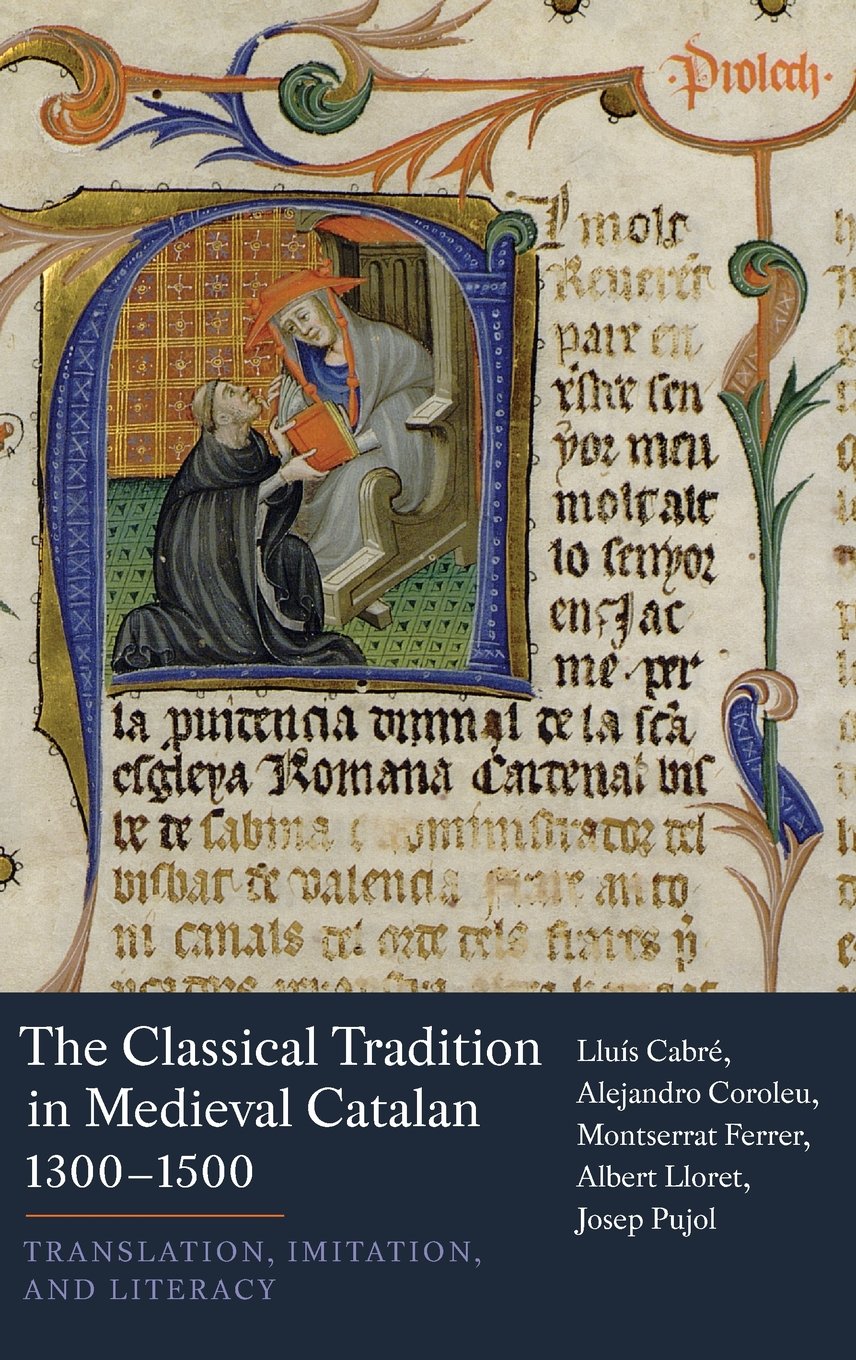 ·Prolech·
l molt
Reuerẽt
pare en
xp̃ist sen
yor meu
molt alt
lo senyor
en Jac
me per
la prouidencia diuinal de la scã
esgleya Romana Cardenal bis
be de sabina e administrador del
bisbat de valencia frare anto
ni canals del orde dels frares p̃
The Classical Tradition
in Medieval Catalan
1300–1500
TRANSLATION, IMITATION,
AND LITERACY
Lluís Cabré,
Alejandro Coroleu,
Montserrat Ferrer,
Albert Lloret,
Josep Pujol